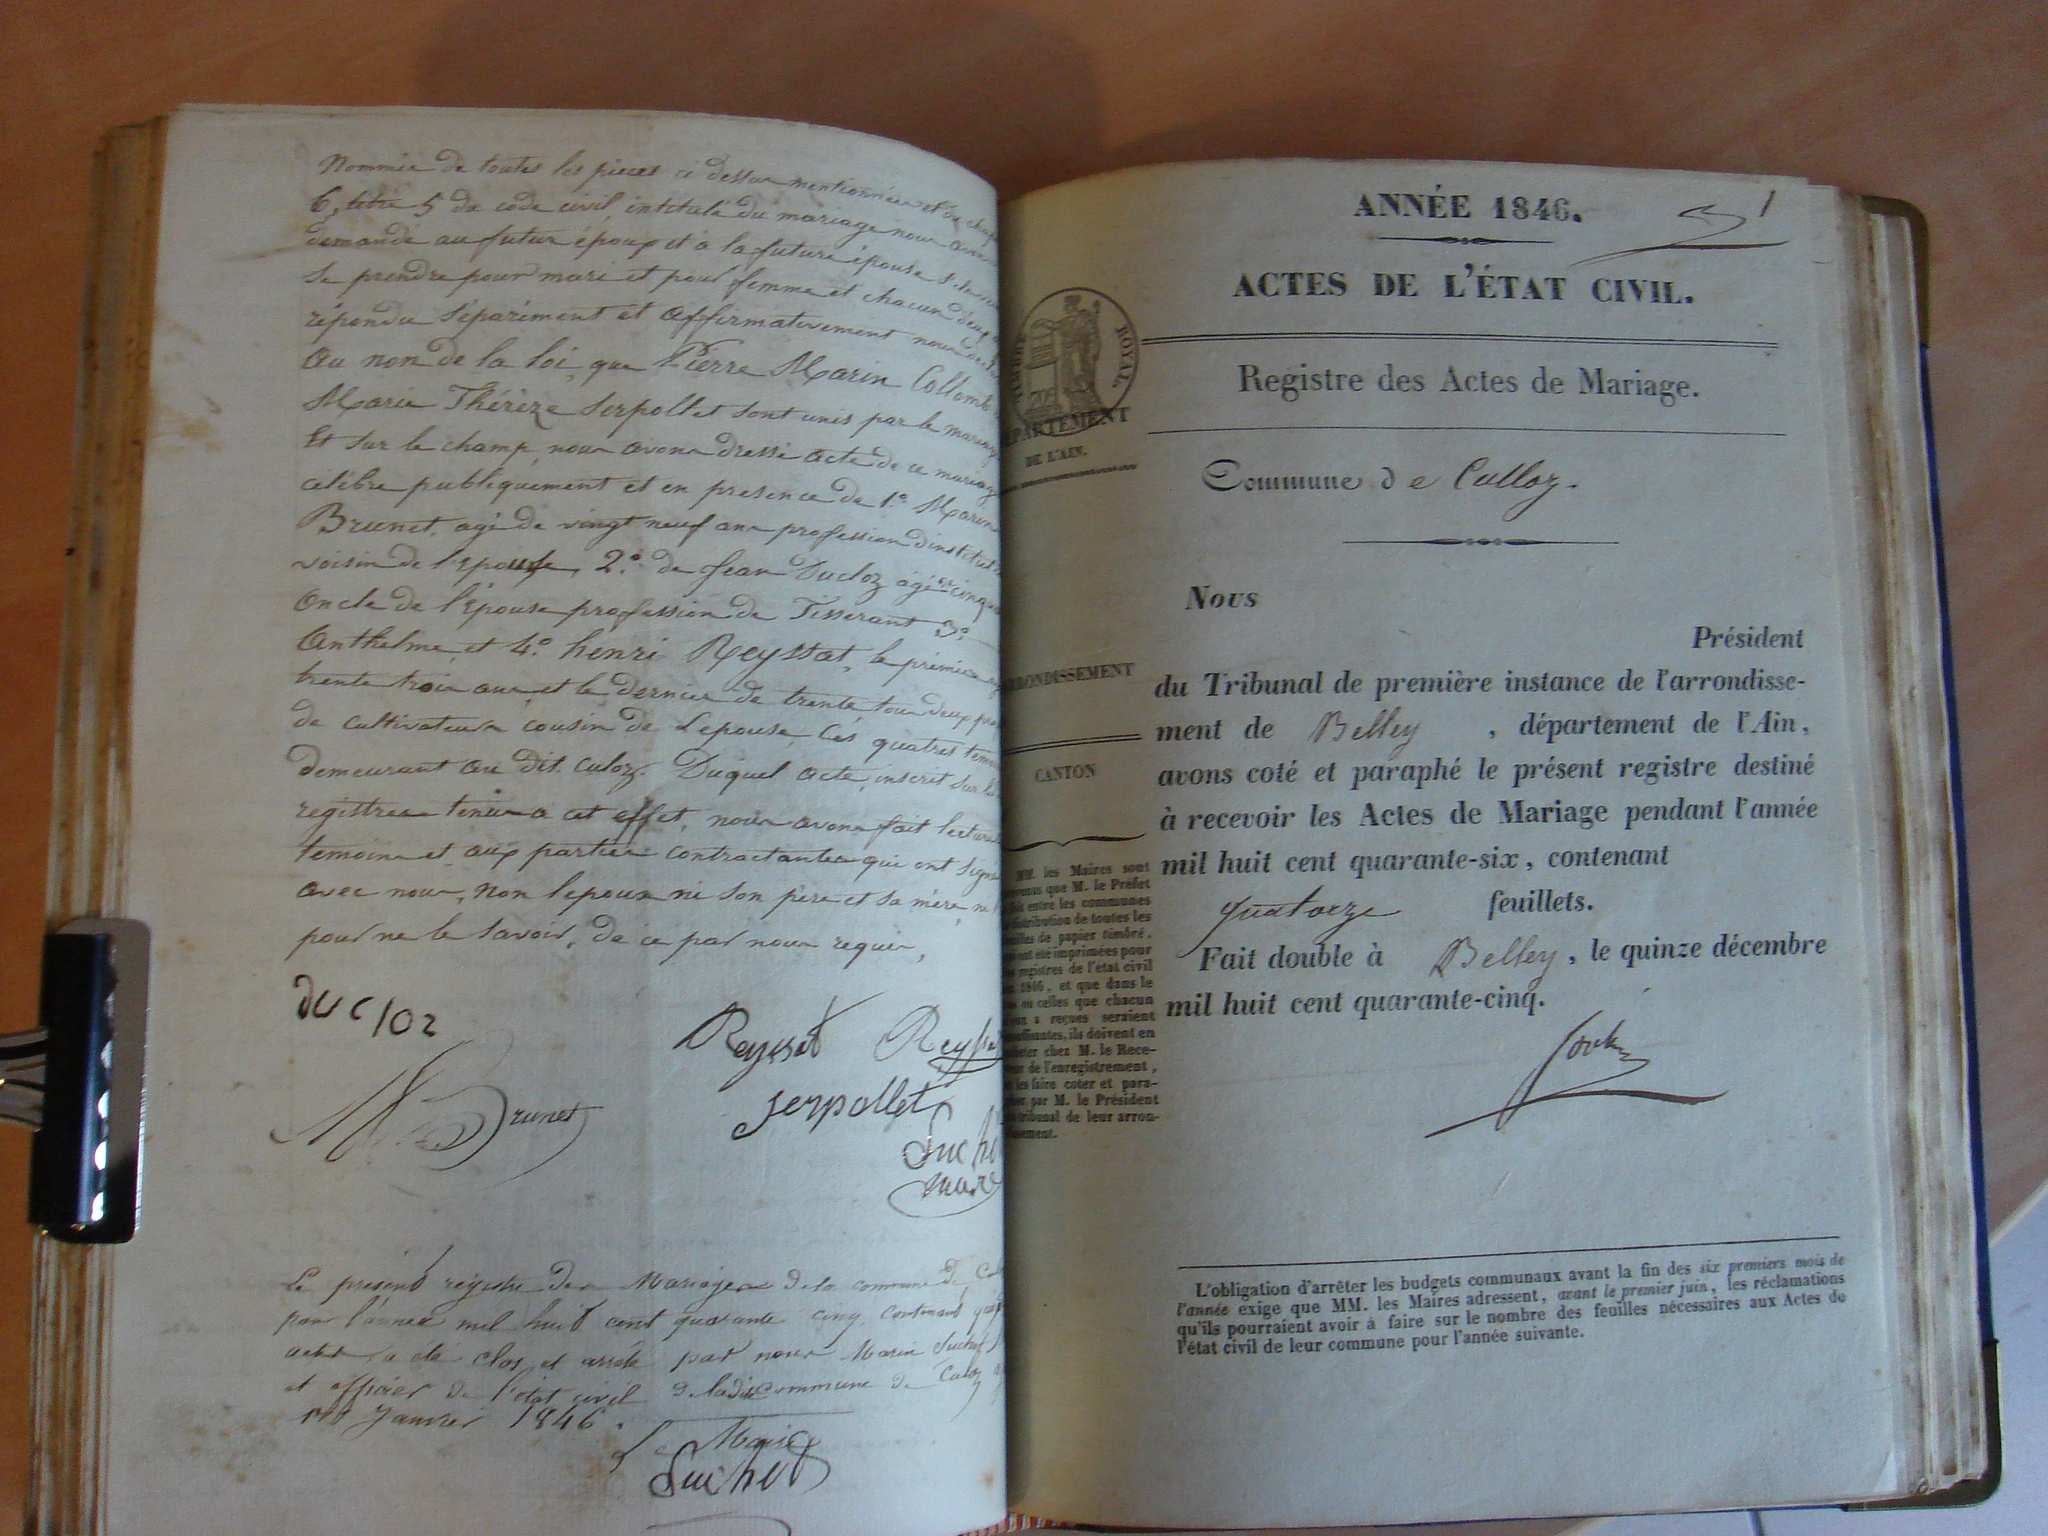 Nommie de toutes les pieces ci dessus mentionnées et du chap
6, titre 5 du code civil, intitulé du mariage nous avons
demandé au futur époux et à la future épouse s'ils
se prendre pour mari et pour femme et chacun d'eux
répondu séparément et affirmativement nous
Au non de la loi, que Pierre Marin Collomb
Marie Thérèze Serpollet sont unis par le mariag
Et sur le champ, nous avons dressé acte de ce mariag
célébre publiquement et en presence de 1.º Marin
Brunet, agé de vingt neuf ans profession d'institut
voisin de l'épouse, 2.º de Jean Ducloz agé de cinqu
Oncle de l'épouse profession de Tisserant 3.º
Anthelme, et 4.º henri Reystat, le prémier
trente trois ans, et le dernier de trente, tou deux pro
de cultivateurs, cousin de l'epouse, Cés quatres temoi
demeurant au dit Culoz. Duquel acte, inscrit sur les
registres tenus a cet effet, nous avons fait lecture
temoins et aux parties contractantes qui ont signé
avec nous, non l'epoux ni son père et sa mère,
pour ne le savoir, de ce par nous requis,
Ducloz
Reystat Reysta
Brunet
Serpollet
Suchet
mare
Le présent régistre des Mariages de la commune de Cul
pour l'année mil huit cent quarante cinq, contenant
actes a été clos et arrêté par nous Marin Suchet
et officier de l'état civil de ladite commune de Culoz
1er Janvier 1846.
Le Maire
Suchet
1
ANNÉE 1846.
ACTES DE L'ÉTAT CIVIL.
TIMBRE ROYAL.
DÉPARTEMENT
DE L'AIN.
Registre des Actes de Mariage.
Commune de Culloz.
Nous
Président
du Tribunal de première instance de l'arrondisse-
ment de Belley, département de l'Ain,
avons coté et paraphé le présent registre destiné
à recevoir les Actes de Mariage pendant l'année
mil huit cent quarante-six, contenant
quatorze feuillets.
Fait double à Belley, le quinze décembre
mil huit cent quarante-cinq.
RRONDISSEMENT
CANTON
MM. les Maires sont
que M. le Préfet
entre les communes
distribution de toutes les
de papier timbré,
ont été imprimées pour
registres de l'état civil
1846, et que dans le
où celles que chacun
a reçues seraient
, ils doivent en
chez M. le Rece-
de l'enregistrement,
les faire coter et para-
par M. le Président
tribunal de leur arron-
L'obligation d'arrêter les budgets communaux avant la fin des six premiers mois de
l'année exige que MM. les Maires adressent, avant le premier juin, les réclamations
qu'ils pourraient avoir à faire sur le nombre des feuilles nécessaires aux Actes de
l'état civil de leur commune pour l'année suivante.